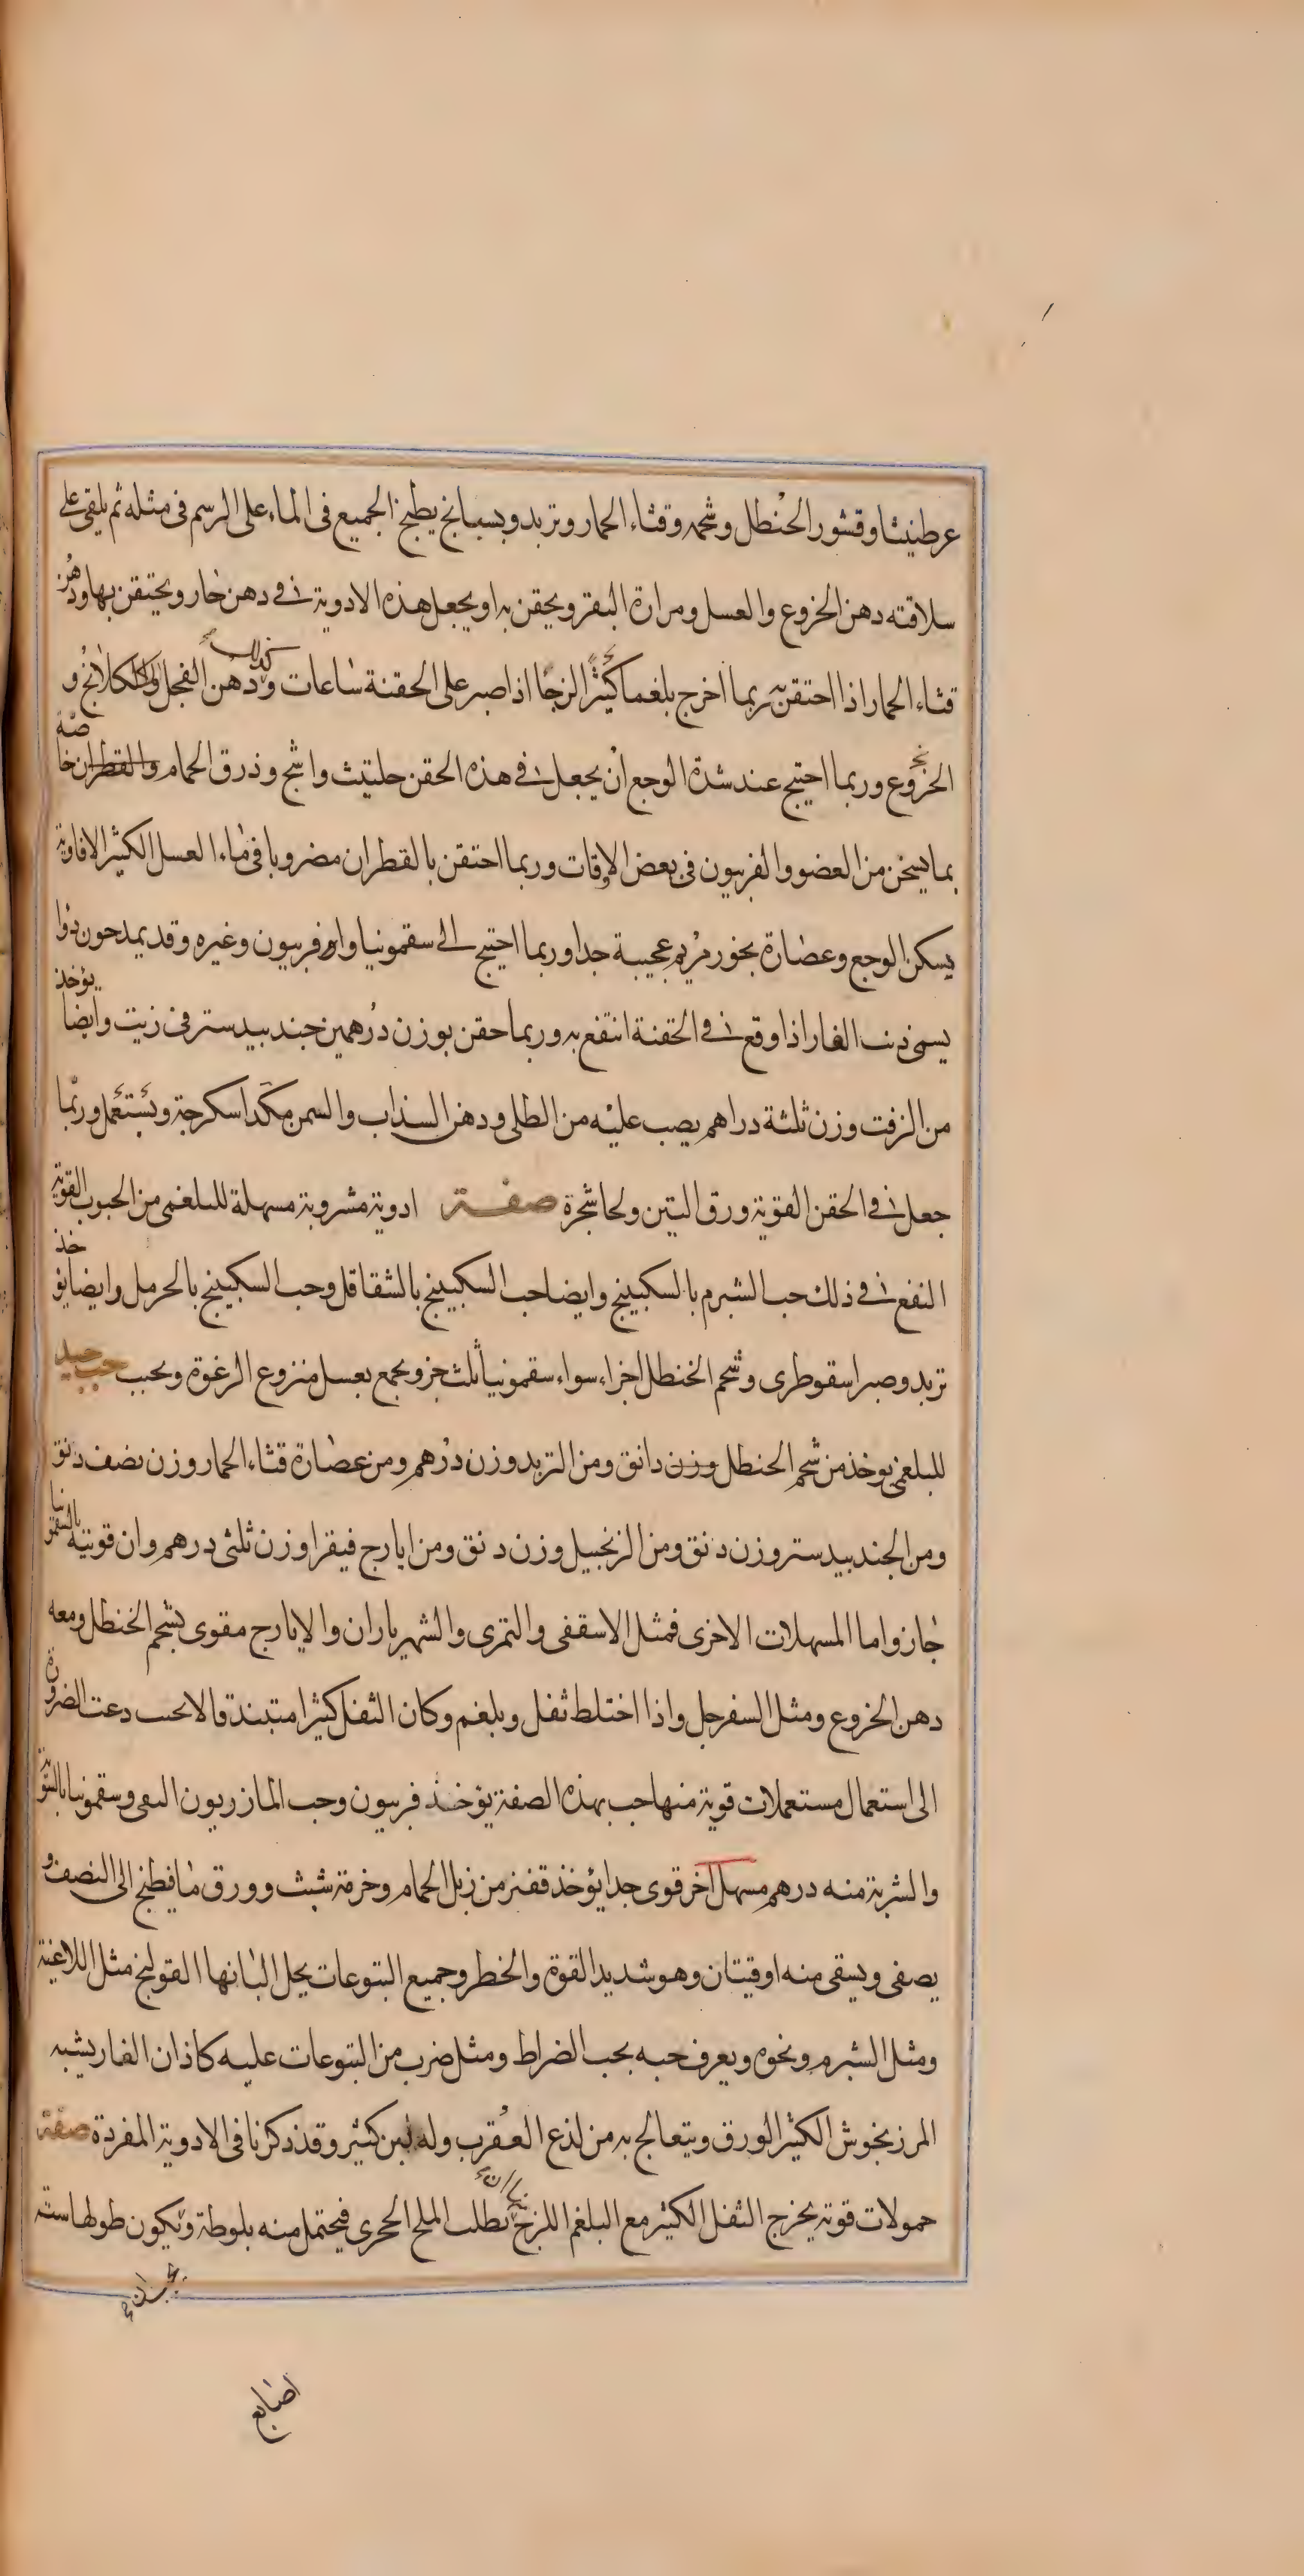 عرطنيثا وقشور الحنظل وشحمه وقثاء الحمار وتربد وبسبايخ يطبخ الجميع فى الماء على الرسم فى مثله ثم يلقى على
سلاقته دهن الخروع والعسل ومرارة البقر ويحقن به او يجعل هذه الادوية فى دهن حار ويحتقن بها ودهن
قثاء الحمار اذا احتقن به ربما اخرج بلغما كثيرا لزجا اذا صبر على الحقنة ساعات ودهن الفجل والكلكلانج و
الخروع وربما احتيج عند شدة الوجع ان يجعل فى هذه الحقن حلتيث واشج وذرق الحمام والقطران خاصة
بما يسخن من العضو والفربيون فى بعض الاوقات وربما احتقن بالقطران مضروبا فى ماء العسل الكثير الافاوية
يسكن الوجع وعصارة بخور مريم عجيبة جدا وربما احتيج الى سقمونيا وفربيون وغيره وقد يمدحون دوا
يسمى ذنب الفار اذا وقع فى الحقنة انتفع به وربما حقن بوزن درهمين جندبيدستر فى زيت وايضا يؤخذ
من الزفت وزن ثلثة دراهم يصب عليه من الطلى ودهن السذاب والسمن مكد اسكرجة ويستعمل وربما
جعل فى الحقن القوية ورق التين ولحا شجرة صفة ادوية مشروبة مسهلة للبلغمى من الحبوب القوية
النفع فى ذلك حب الشبرم بالسكبينج وايضا حب السكبينج بالشقاقل وحب السكبينج بالحرمل وايضا يؤخذ
تربد وصبر اسقوطرى وشحم الحنظل اجزاء سواء سقمونيا ثلث جزو يجمع بعسل منزوع الرغوة ويحبب حب جيد
للبلغمى يوخذ من شحم الحنظل وزن دانق ومن التربد وزن درهم ومن عصارة قثاء الحمار وزن نصف دنق
ومن الجندبيدستر وزن دنق ومن الزنجبيل وزن دنق ومن ايارج فيقرا وزن ثلثى درهم وان قويته بالسقمونيا
جاز واما المسهلات الاخرى فمثل الاسقفى والتمرى والشهرياران والايارج مقوى بشحم الحنظل ومعه
دهن الخروع ومثل السفرجل واذا اختلط ثفل وبلغم وكان الثفل كثيرا متبندقا لايحب دعت الضرورة
الى استعمال مستعملات قوية منها حب بهذه الصفة يؤخذ فربيون وحب المازريون النقى وسقمونيا بالسوية
والشربة منه درهم مسهل آخر قوى جدا يؤخذ قفيز من زبل الحمام وخرمة شبث وورق ما فيطبخ الى النصف و
يصفى ويسقى منه اوقيتان وهو شديد القوة والخطر وجميع اليتوعات يحل البانها القولنج مثل اللاغية
ومثل الشبرم ونحوه ويعرف حبه بحب الضراط ومثل ضرب من اليتوعات عليه كاذان الفار يشبه
المرزنجوش الكثير الورق ويتعالج به من لذع العقرب وله لبن كثير وقد ذكرنا فى الادوية المفردة صفة
حمولات قوية يخرج الثفل الكثير مع البلغم اللزج يطلب الملح الحجرى فيحتمل منه بلوطة ويكون طولها ستة
اصابع